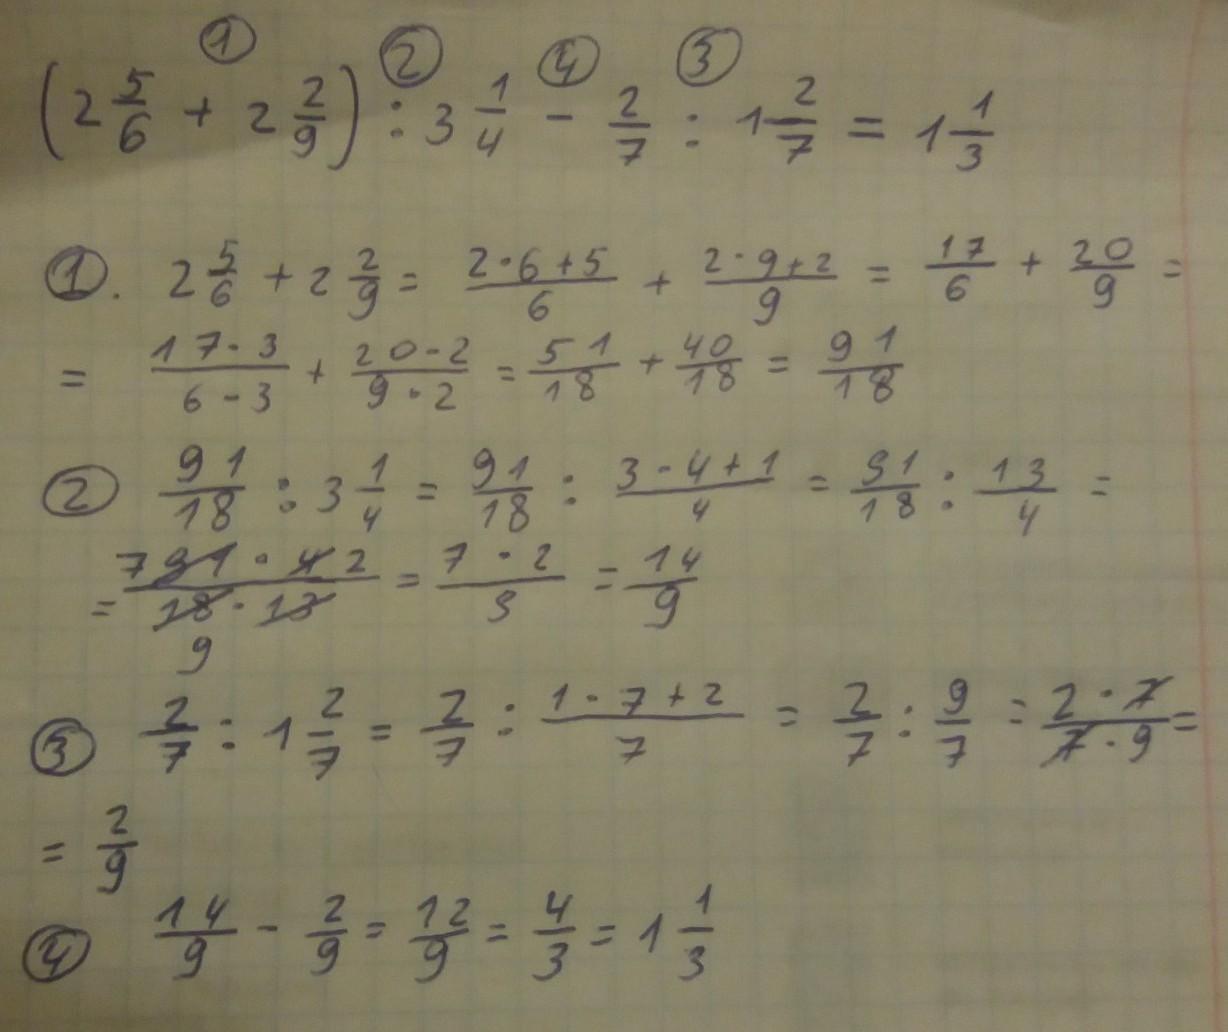 ① ② ④ ③
(2 5/6 + 2 2/9) : 3 1/4 - 2/7 : 1 2/7 = 1 1/3
①. 2 5/6 + 2 2/9 = (2·6+5)/6 + (2·9+2)/9 = 17/6 + 20/9 =
= (17·3)/(6·3) + (20·2)/(9·2) = 51/18 + 40/18 = 91/18
② 91/18 : 3 1/4 = 91/18 : (3·4+1)/4 = 91/18 : 13/4 =
= (7 91·4 2)/(18·13) = (7·2)/9 = 14/9
9
③ 2/7 : 1 2/7 = 2/7 : (1·7+2)/7 = 2/7 : 9/7 = (2·7)/(7·9) =
= 2/9
④ 14/9 - 2/9 = 12/9 = 4/3 = 1 1/3